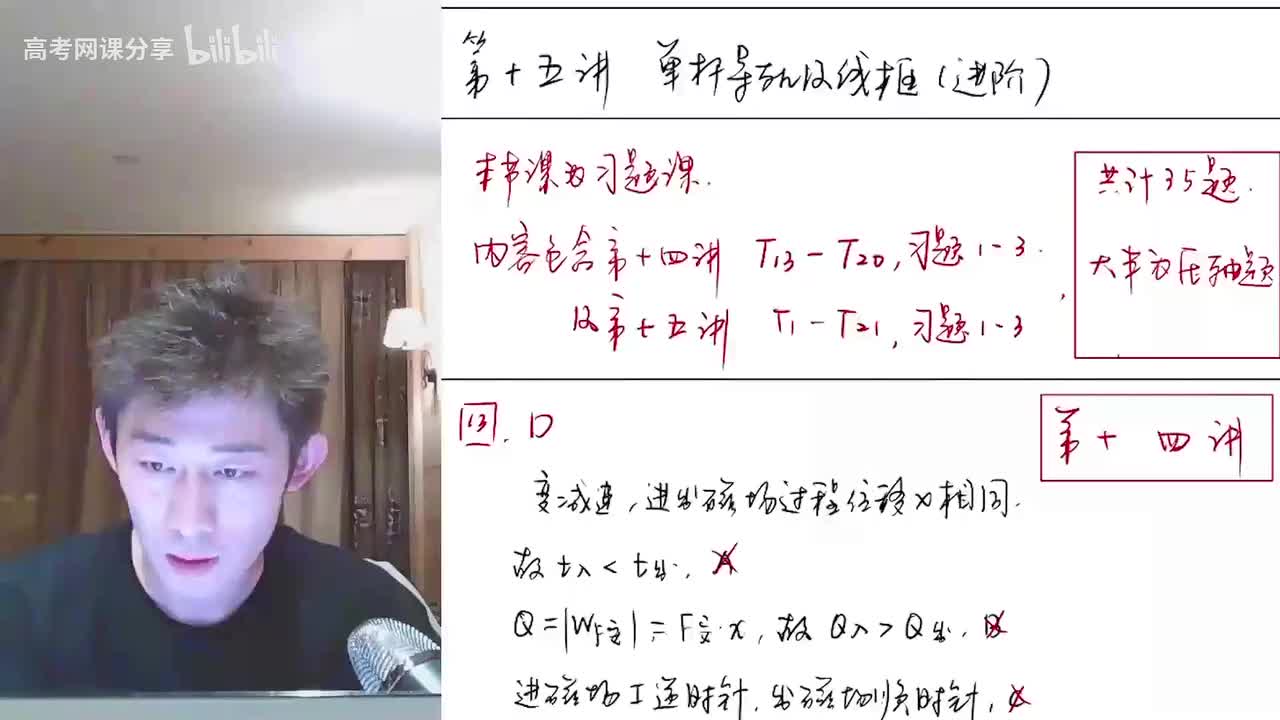 高考网课分享 bilibili
第十五讲 单杆导轨及线框(进阶)
本节课为习题课.
内容包含第十四讲 T13-T20,习题1-3.
及第十五讲 T1-T21,习题1-3
共计35题.
大半为压轴题
第十四讲
13. D
变减速,进出磁场过程位移x相同.
故t入<t出. A
Q=|WF安|=F安·x,故Q入>Q出. B
进磁场I逆时针,出磁场顺时针, C